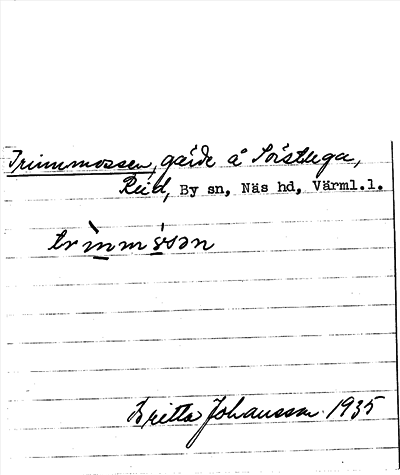 Trimmossen, gärde å Torstlega,
Reid, By sn, Näs hd, Värml.l.
trìmmósson
Britta Johansson 1935